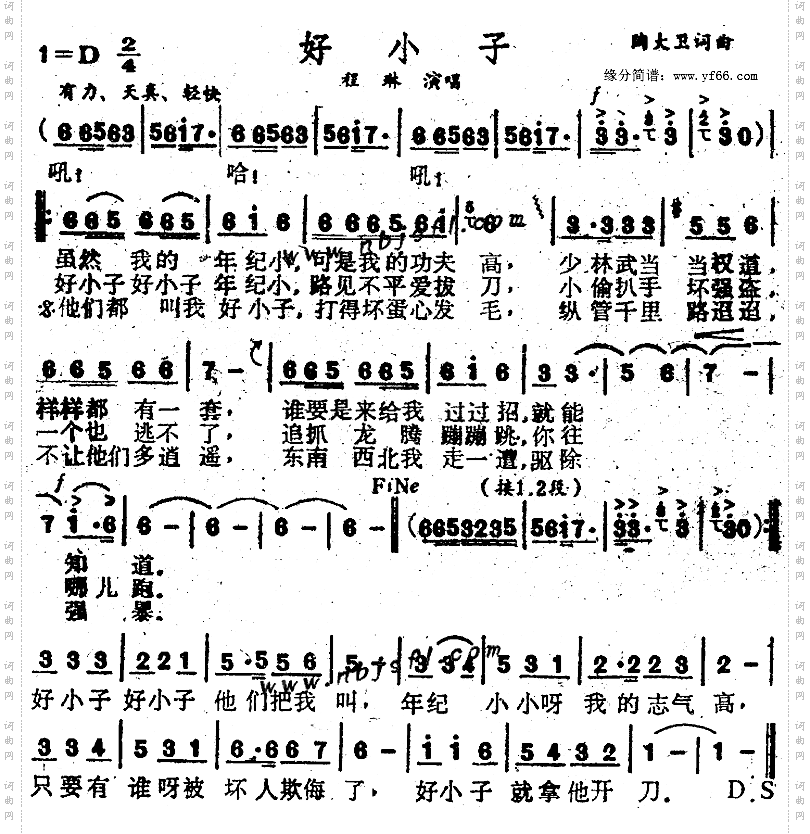 好 小 子
1=D 2/4
陶大卫词曲
程 琳 演唱
缘分简谱：www.yf66.com
有力、天真、轻快
f
( 66563 | 5617· | 66563 | 5617· | 66563 | 5617· | 3·3· 3 | 30 )
吼！ 哈！ 吼！
665 665 | 6 i 6 | 6 6 6 5 6 i | 6 | 3·3 3 3 | 5 5 6 |
虽然 我的 年纪小，可是我的功夫 高， 少林武当 当权道，
好小子好小子 年纪小，路见不平爱拔 刀， 小偷扒手 坏强盗，
他们都 叫我 好小子，打得坏蛋心发 毛， 纵管千里 路迢迢，
6 6 5 6 6 | 7 - | 665 665 | 6 i 6 | 3 3 3· | 5 6 | 7 - |
样样都 有一 套， 谁要是来给我 过过招，就能
一个也 逃不 了， 追抓 龙 腾 蹦蹦跳，你往
不让他们多逍 遥， 东南 西北我 走一遭，驱除
f FiNe (接1.2段)
7 i·6 | 6 - | 6 - | 6 - | 6 - | (6653235 | 5617· | 33· 3 | 30) :|
知 道。
哪儿 跑。
强 暴。
3 3 3 | 2 2 1 | 5·5 5 6 | 5 - | 3 3 4 | 5 3 1 | 2·2 2 3 | 2 - |
www.nbjsfl.com
好小子 好小子 他 们把我 叫， 年纪 小小呀 我的志气 高，
3 3 4 | 5 3 1 | 6·6 6 7 | 6 - | i i 6 | 5 4 3 2 | 1 - | 1 - :|
只要有 谁呀被 坏人欺侮 了， 好小子 就拿他开 刀． D．S
词曲网